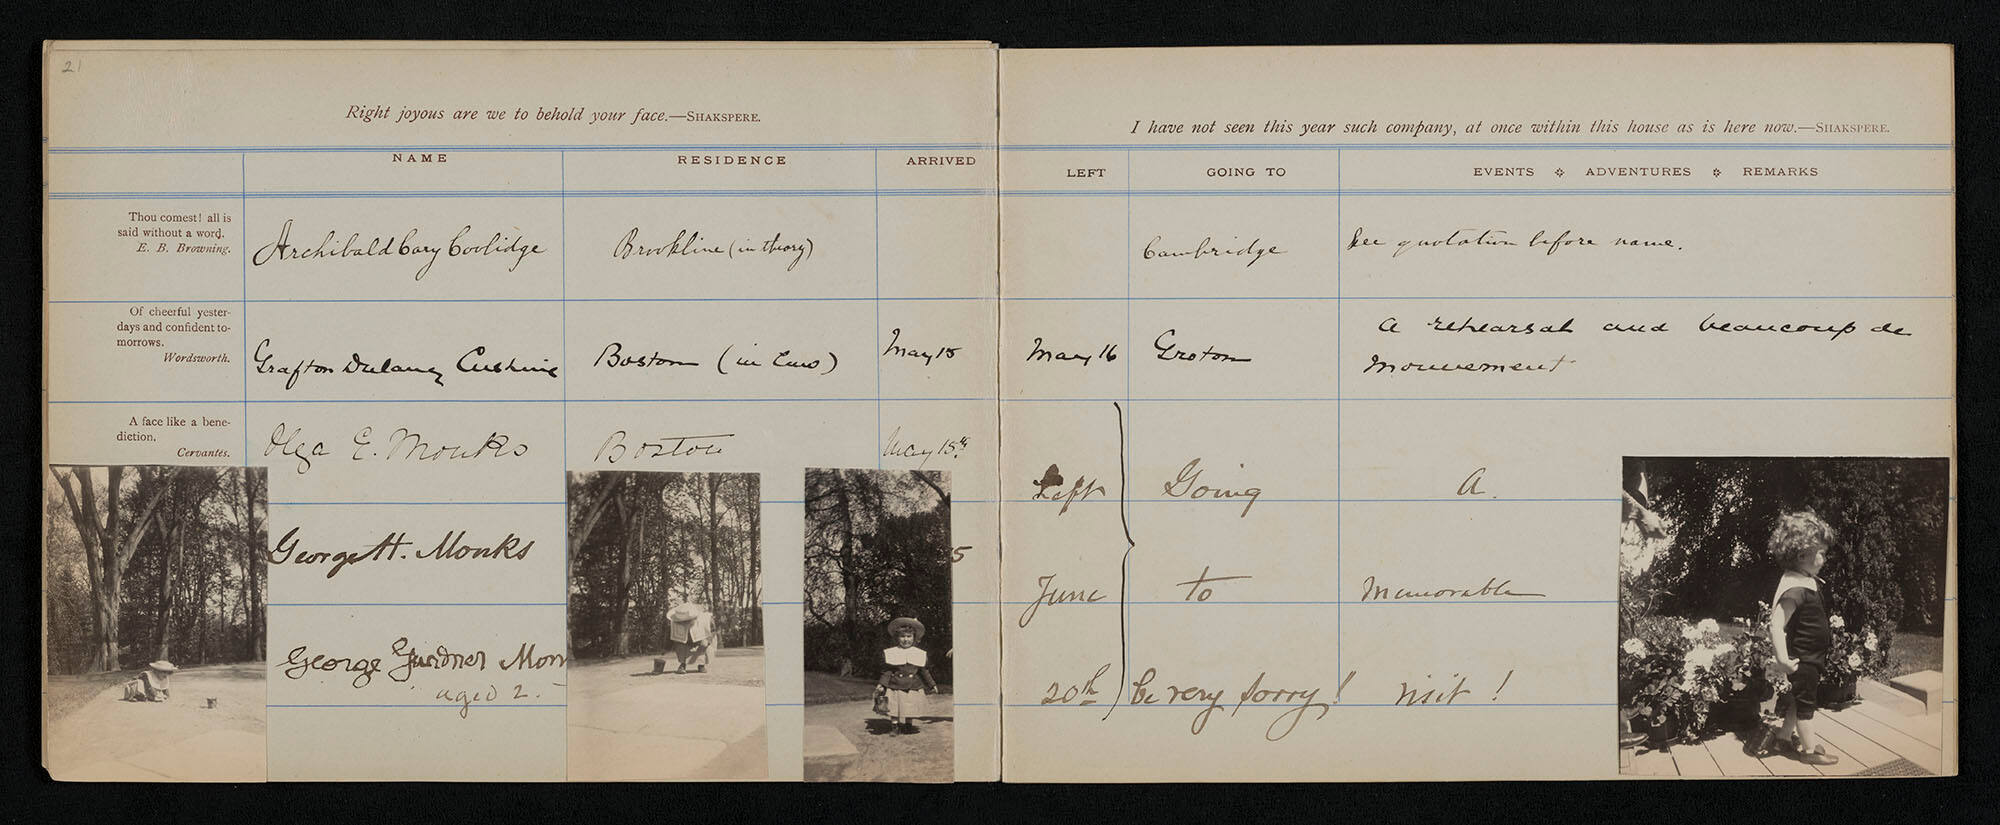 21
Right joyous are we to behold your face.—SHAKSPERE.
I have not seen this year such company, at once within this house as is here now.—SHAKSPERE.
NAME RESIDENCE ARRIVED LEFT GOING TO EVENTS ADVENTURES REMARKS
Thou comest! all is
said without a word.
E. B. Browning.
Archibald Cary Coolidge Brookline (in theory) Cambridge See quotation before name.
Of cheerful yester-
days and confident to-
morrows.
Wordsworth.
Grafton Dulany Cushing Boston (in law) May 15 May 16 Groton A rehearsal and beaucoup de
mouvement
A face like a bene-
diction.
Cervantes.
Olga E. Monks Boston May 15th
Left Going A
George H. Monks 5
June to memorable
George Gardner Mon
aged 2.
20th be very sorry! visit!